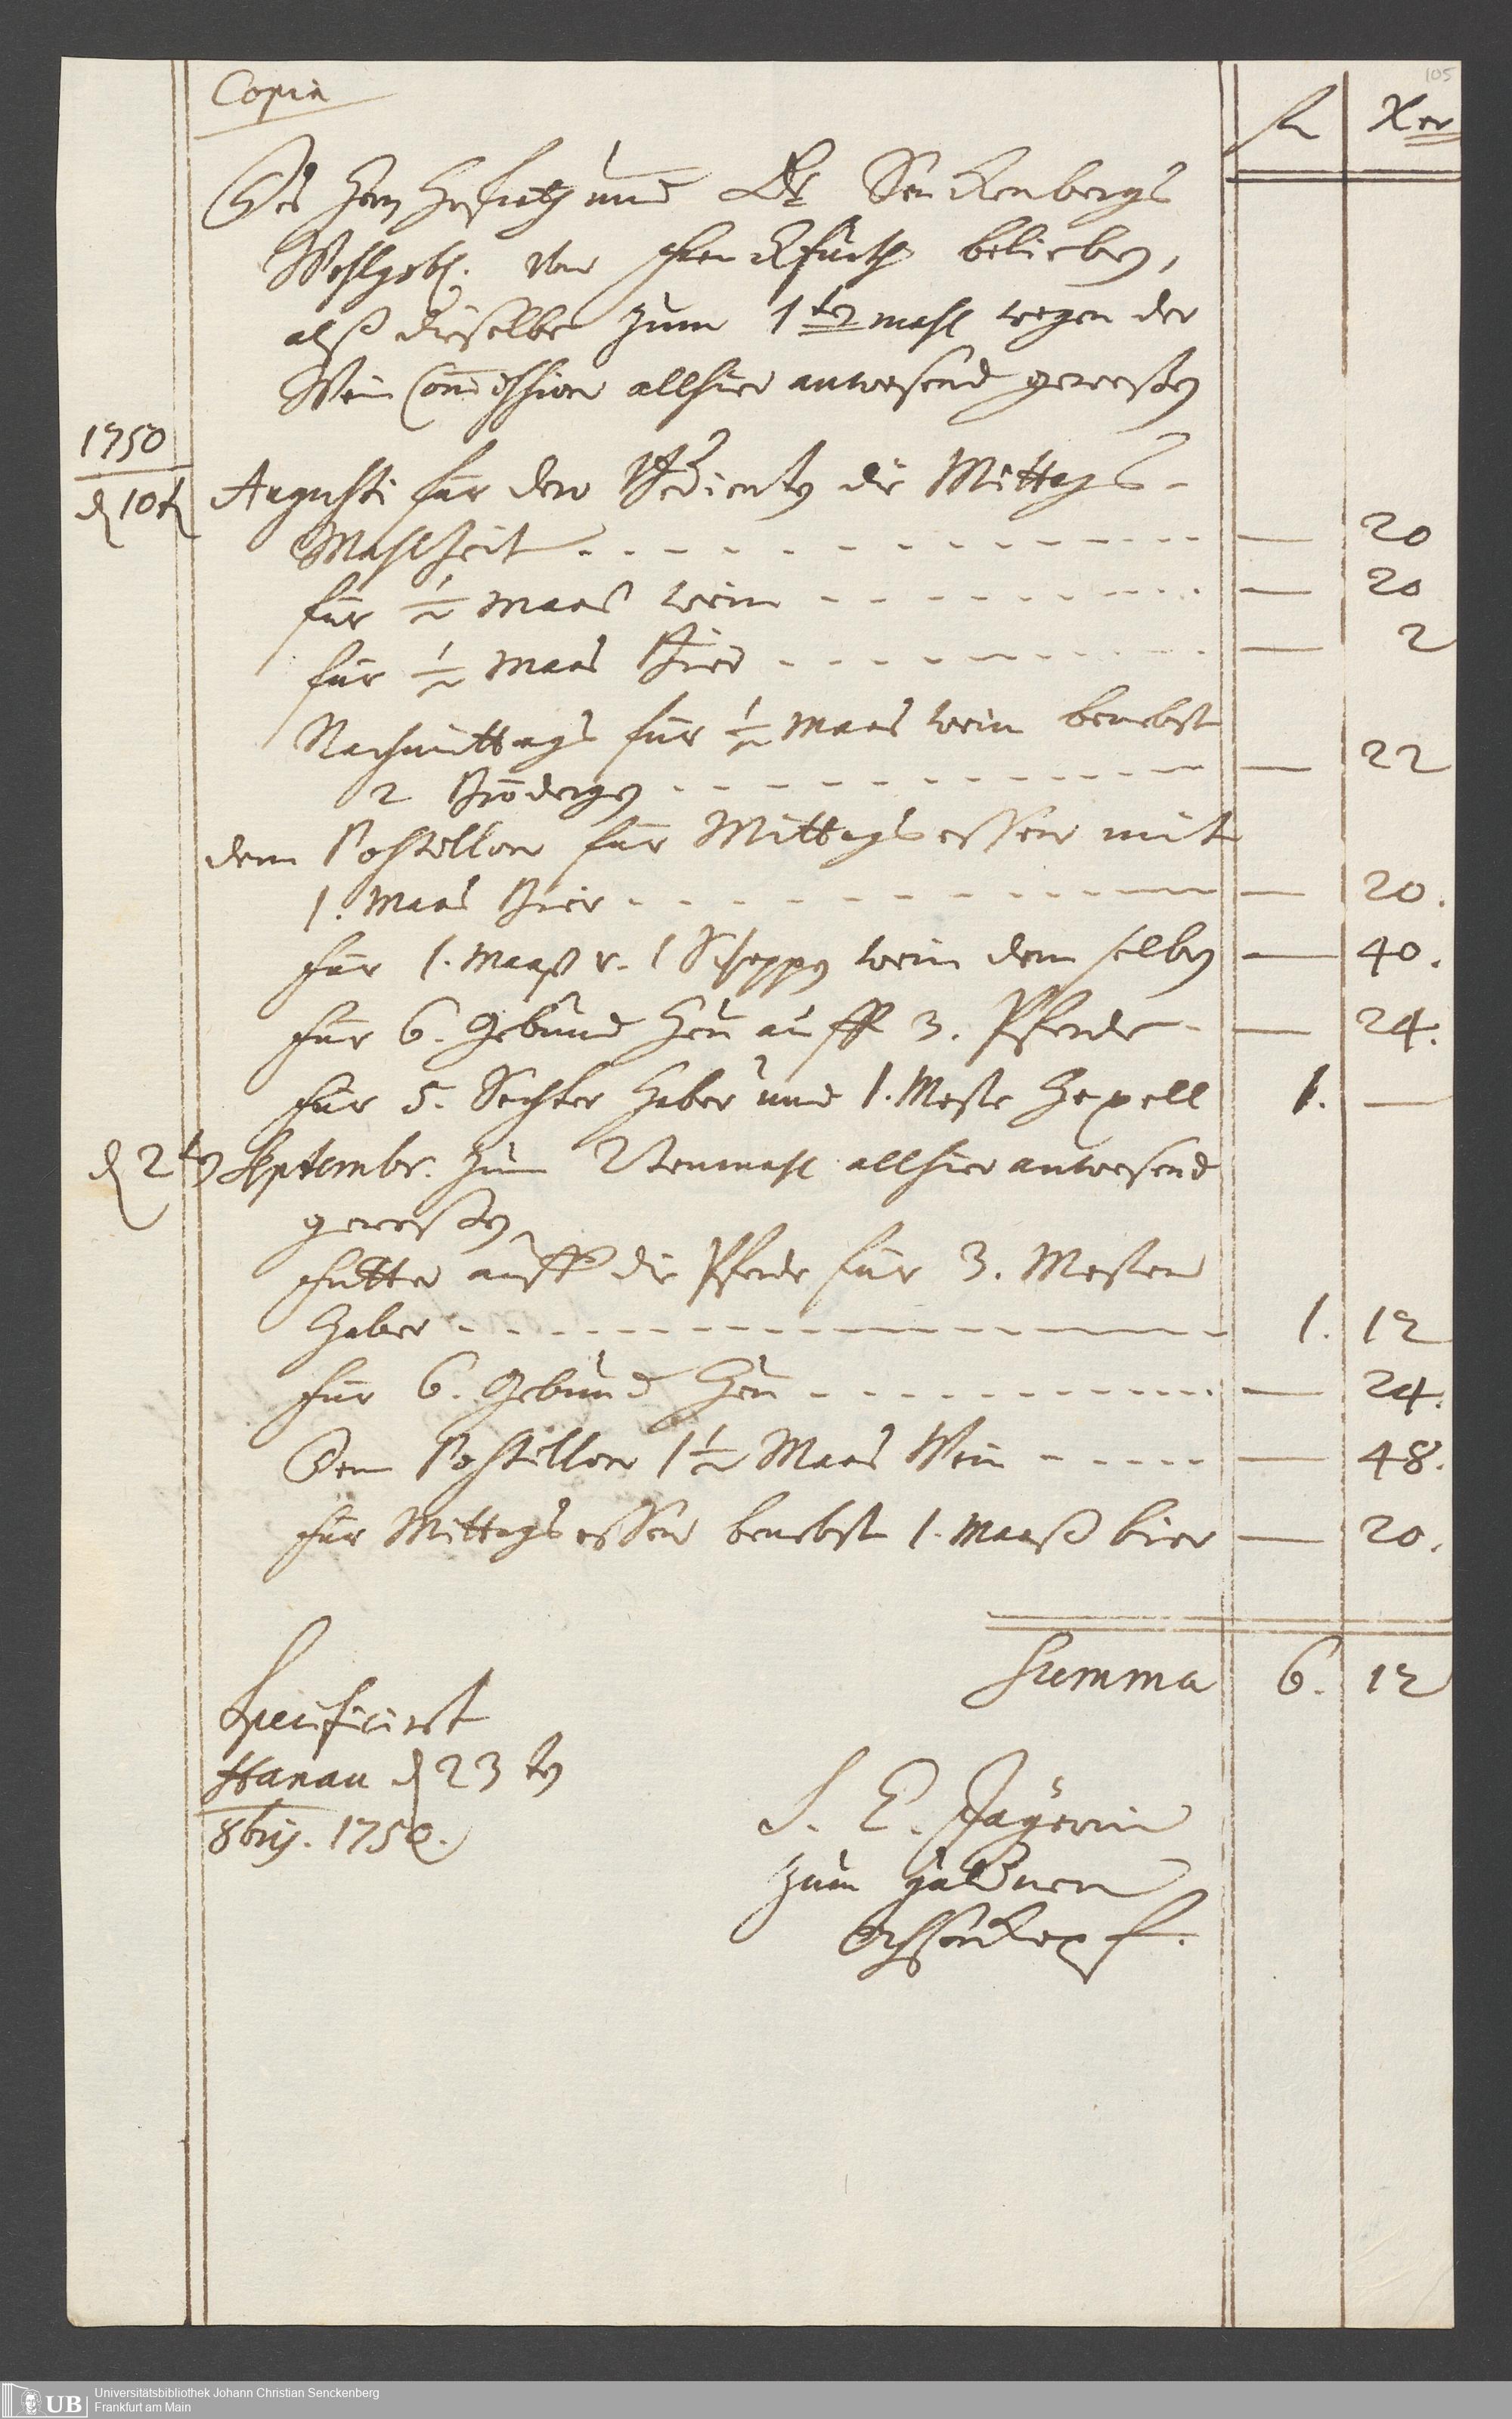 105
Copia
fl Xer
Des Herrn Hofrath und Dr Senckenbergs
Wohlgeb. von Franckfurth belieben,
alß dieselbe zum 1ten mahl wegen der
Wein Commission allhier anwesend geweßen
1750
d 10t Augusti für den Bedienten die Mittags-
Mahlzeit - - - — 20
für ½ Maas wein - - - — 20
für ½ Maas Bier - - - — 2
Nachmittags für ½ Maas wein benebst
2 Brödergen - - - — 22
dem Postillon für Mittags essen mit
1. Maas Bier - - - — 20.
für 1. Maaß v. 1 Schoppen wein dem selben — 40.
für 6. Gebund Heu auff 3. Pferde - — 24.
für 5. Sechter Haber und 1. Meste Hexell 1. —
d 2ten Septembr. zum 2tenmahl allhier anwesend
geweßen
futter auff die Pferde für 3. Mesten
Haber - - - 1. 12
für 6. Gebund Heu - - - — 24.
Dem Postillon 1½ Maas Wein - - - — 48.
für Mittags essen benebst 1. Maaß bier — 20.
Summa 6. 12
Specificirt
Hanau d 23ten
8bris. 1750.
S. E. Jägerin
zum güldnen
Ochsenkopf.
UB
Universitätsbibliothek Johann Christian Senckenberg
Frankfurt am Main